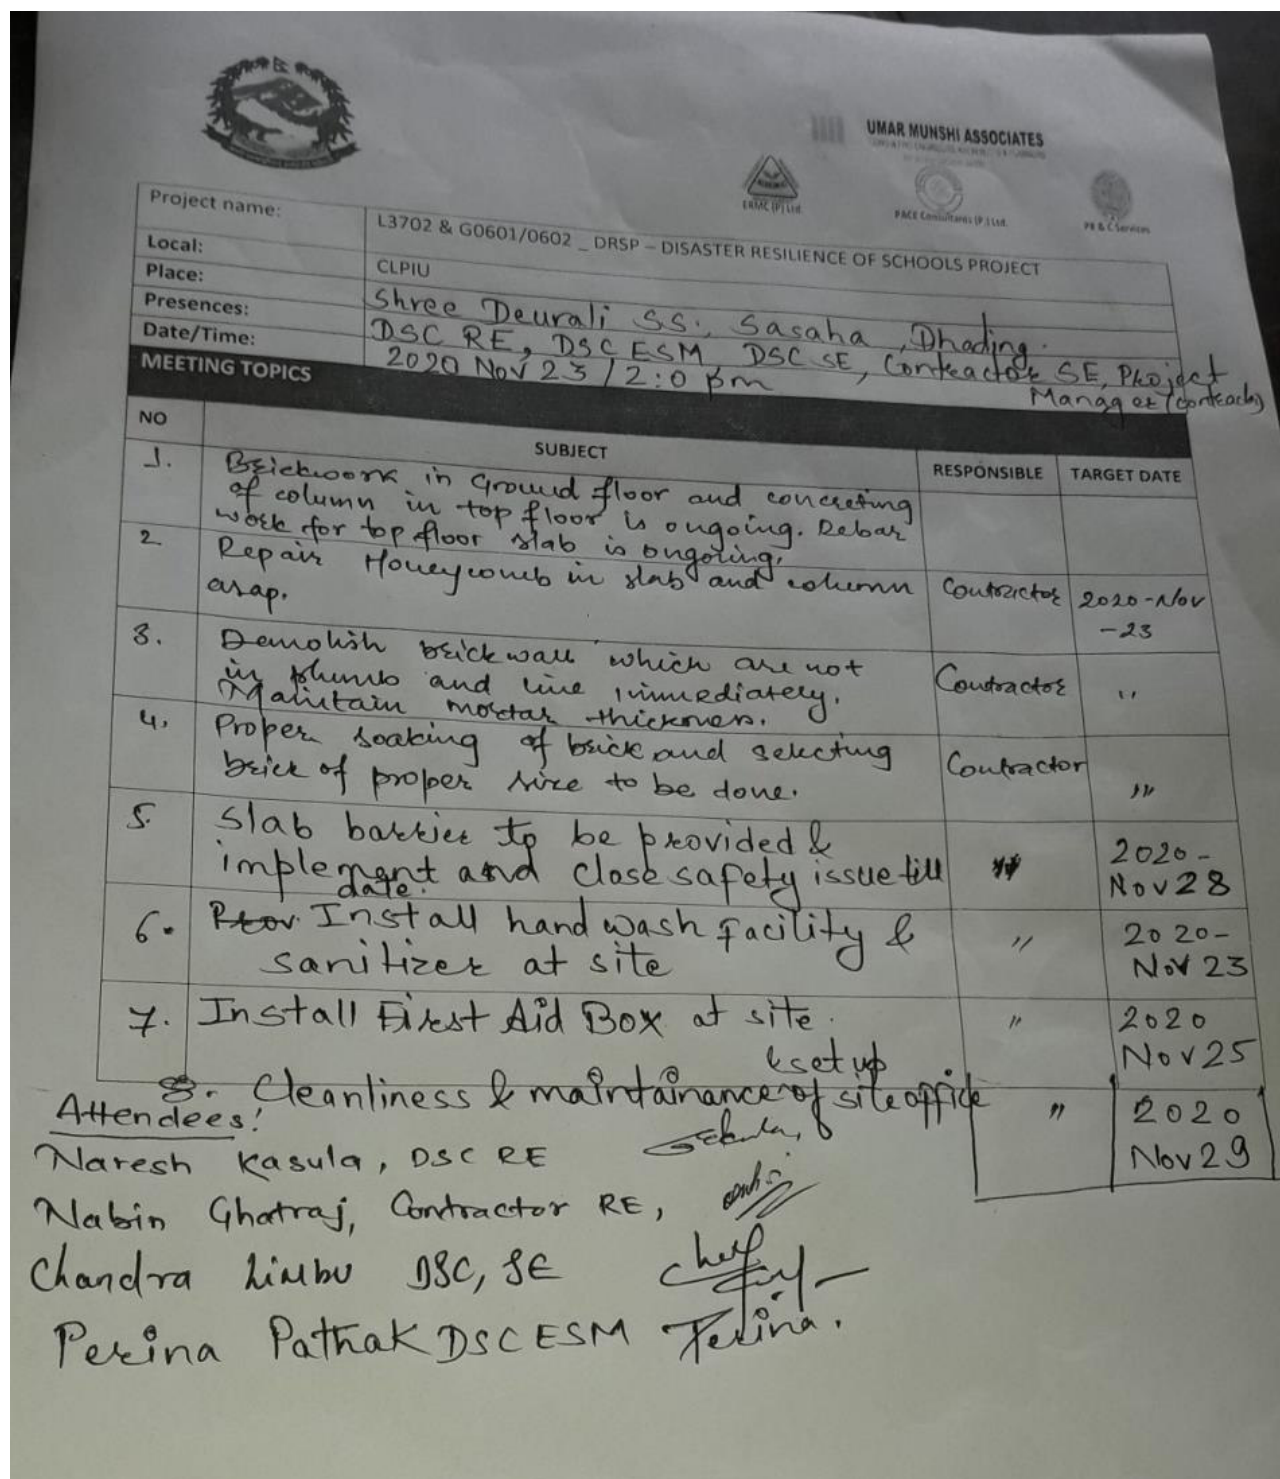 UMAR MUNSHI ASSOCIATES
ERMC (P) Ltd.
PACE Consultants (P.) Ltd.
PR & C Services
Project name: L3702 & G0601/0602 _ DRSP – DISASTER RESILIENCE OF SCHOOLS PROJECT
Local: CLPIU
Place: Shree Deurali SS., Sasaha, Dhading.
Presences: DSC RE, DSC ESM, DSC SE, Contractor SE, Project
Manager (Contractor)
Date/Time: 2020 Nov 23 / 2:0 pm
MEETING TOPICS
NO SUBJECT RESPONSIBLE TARGET DATE
1. Brickwork in Ground floor and concreting
of column in top floor is ongoing. Rebar
work for top floor slab is ongoing.
2. Repair Honeycomb in slab and column Contractor 2020-Nov
asap. -23
3. Demolish brickwall which are not
in plumb and line immediately. Contractor "
Maintain mortar thickness.
4. Proper soaking of brick and selecting Contractor
brick of proper size to be done. "
5. Slab barrier to be provided & 2020-
implement and close safety issue till " Nov 28
date.
6. Install hand wash facility & " 2020-
sanitizer at site Nov 23
7. Install First Aid Box at site. " 2020
Nov 25
& set up
8. Cleanliness & maintainance of site office " 2020
Nov 29
Attendees:
Naresh Kasula, DSC RE
Nabin Ghatraj, Contractor RE,
Chandra Limbu DSC, SE
Perina Pathak DSC ESM Perina.